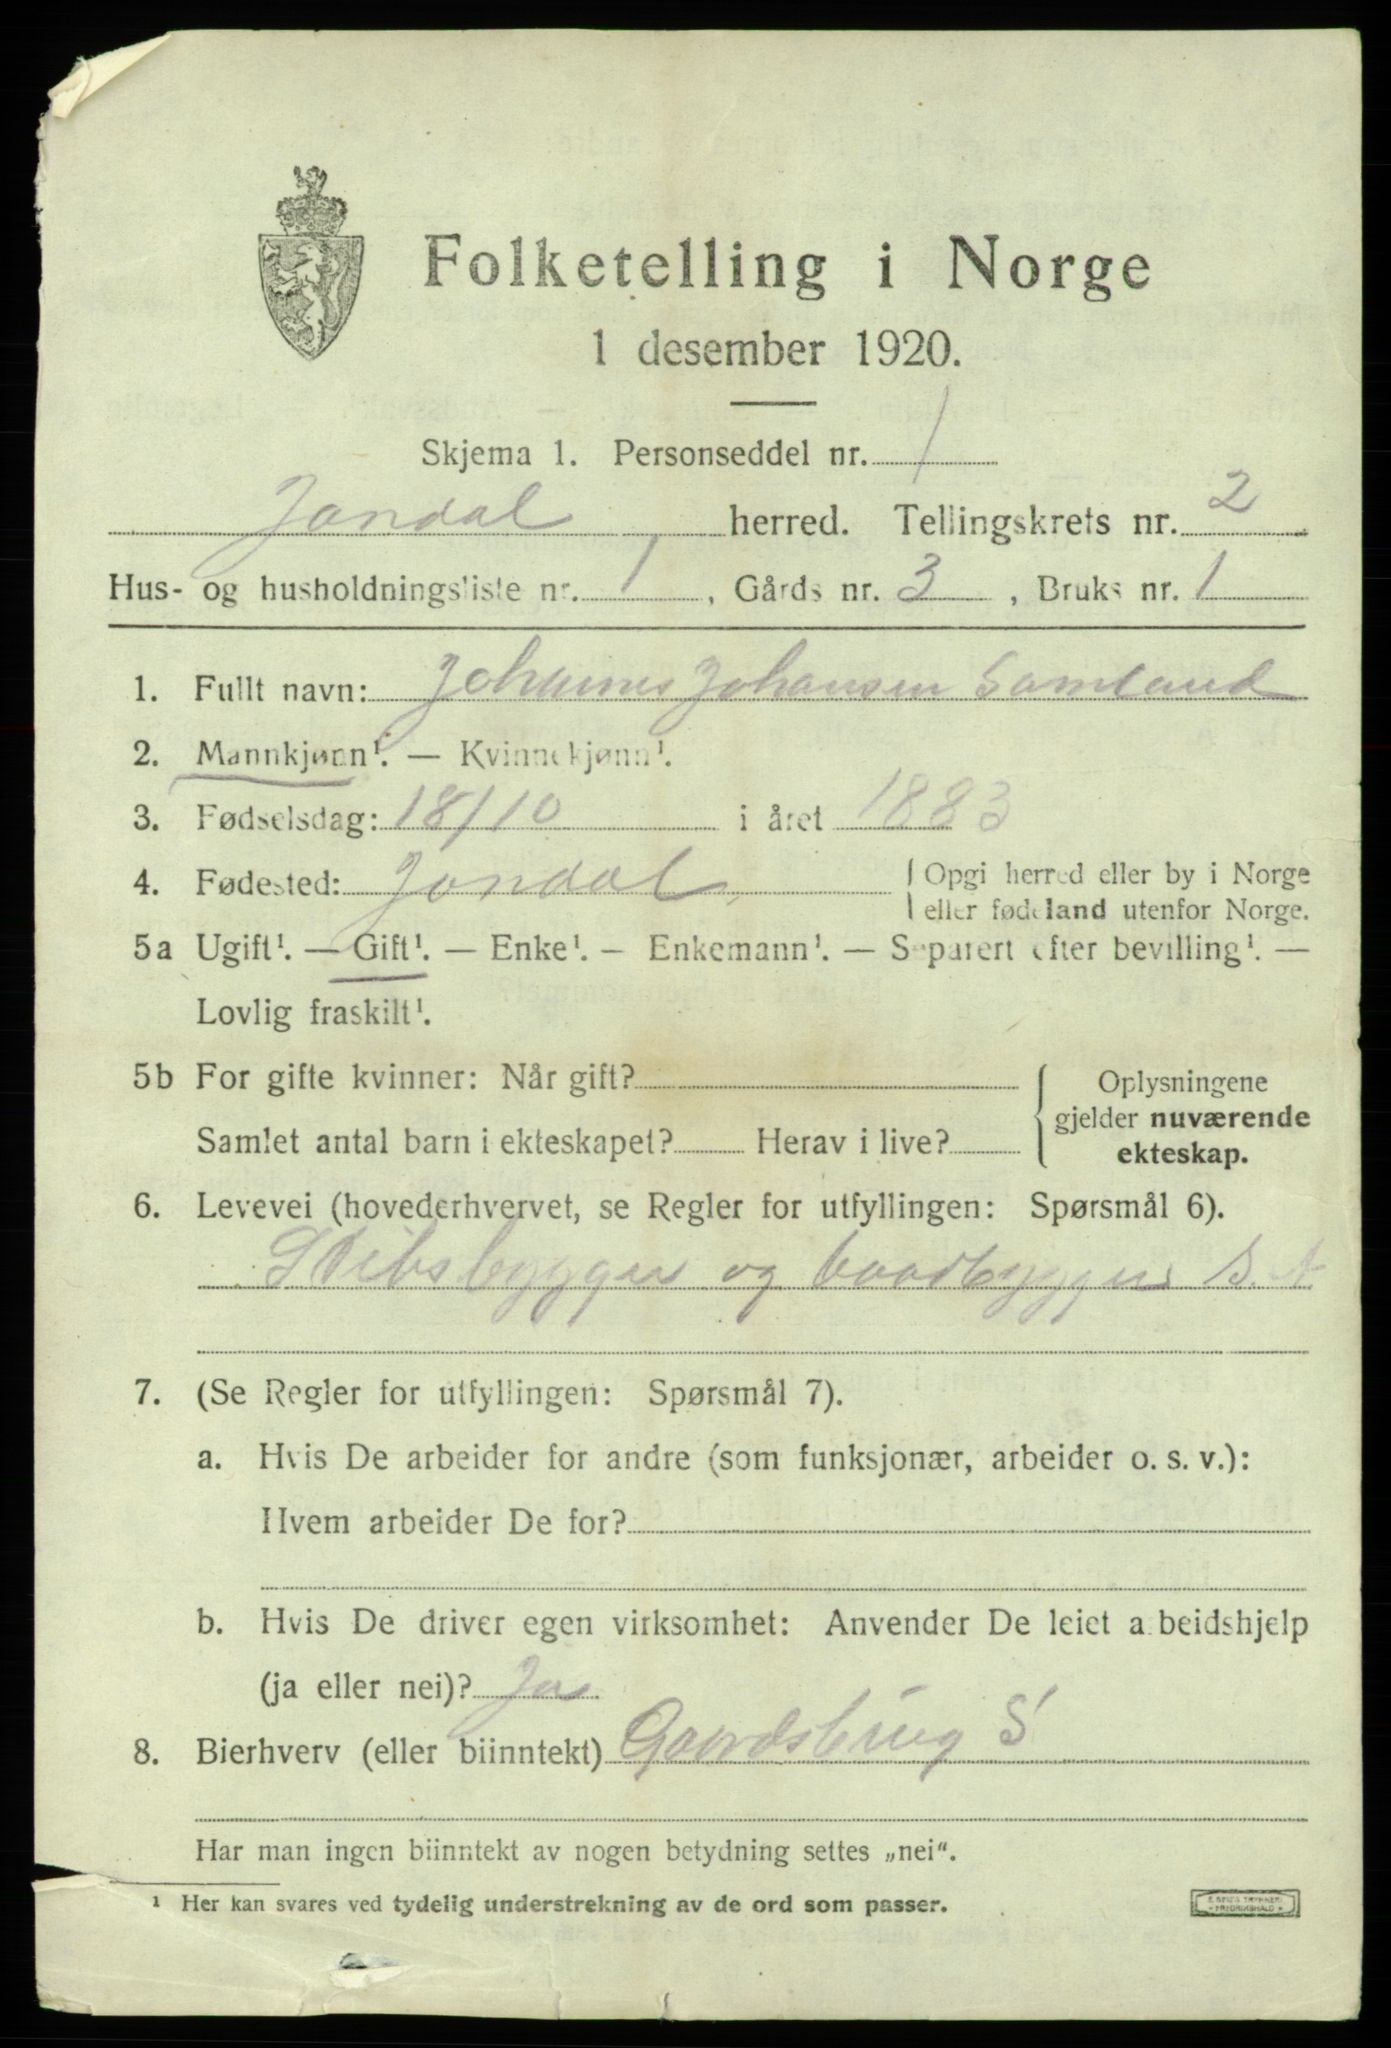 Folketelling i Norge
1 desember 1920.
Skjema 1. Personseddel nr. 1
Jondal herred. Tellingskrets nr. 2
Hus- og husholdningsliste nr. 1, Gårds nr. 3, Bruks nr. 1
1. Fullt navn: Johannes Johansen Samland
2. Mannkjønn¹. — Kvinnekjønn¹.
3. Fødselsdag: 18/10 i året 1883
4. Fødested: Jondal
Opgi herred eller by i Norge
eller fødeland utenfor Norge.
5a Ugift¹. — Gift¹. — Enke¹. — Enkemann¹. — Separert efter bevilling¹. —
Lovlig fraskilt¹.
5b For gifte kvinner: Når gift?
Samlet antal barn i ekteskapet? Herav i live?
Oplysningene
gjelder nuværende
ekteskap.
6. Levevei (hovederhvervet, se Regler for utfyllingen: Spørsmål 6).
Skibsbygger og baadbygger S. A
7. (Se Regler for utfyllingen: Spørsmål 7).
a. Hvis De arbeider for andre (som funksjonær, arbeider o. s. v.):
Hvem arbeider De for?
b. Hvis De driver egen virksomhet: Anvender De leiet arbeidshjelp
(ja eller nei)? Ja
8. Bierhverv (eller biinntekt) Gaardsbrug S
Har man ingen biinntekt av nogen betydning settes „nei“.
¹ Her kan svares ved tydelig understrekning av de ord som passer.